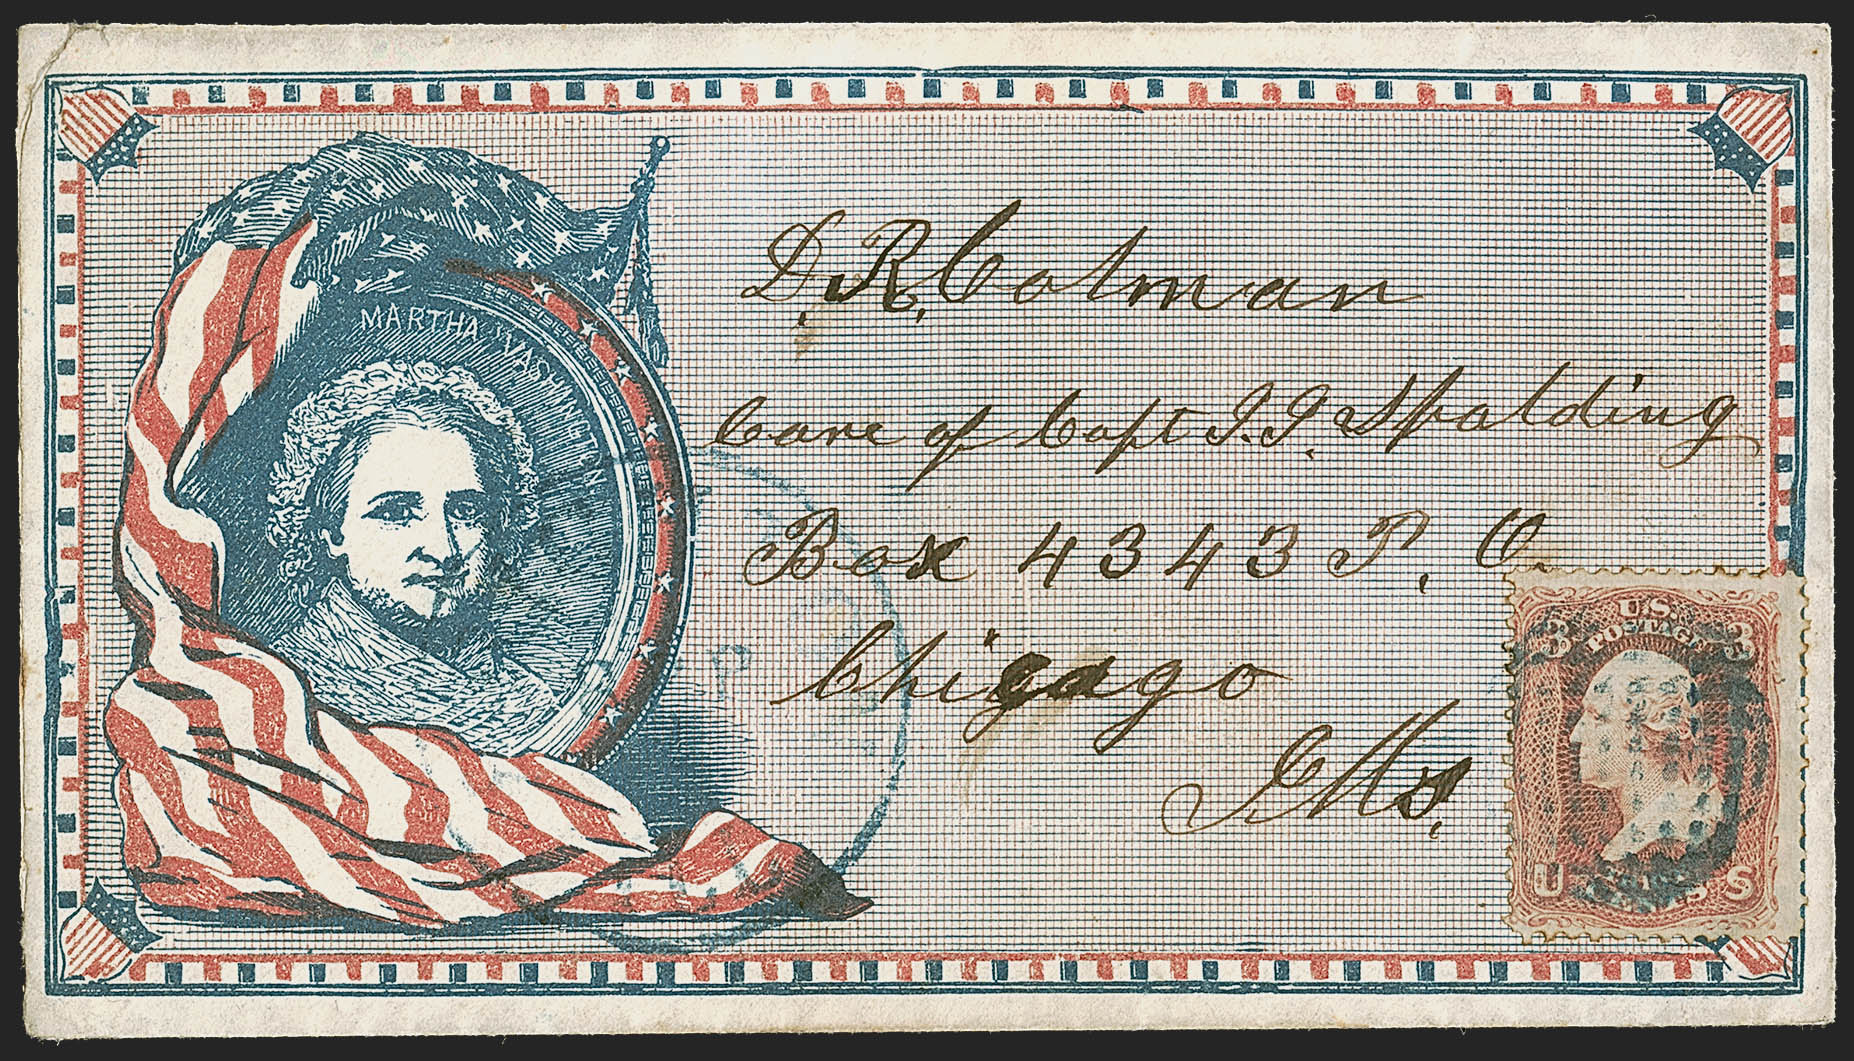 MARTHA WASHINGTON
D. R. Colman
Care of Capt J. J. Spalding
Box 4343 P. O.
Chicago
Ills.
U.S.
POSTAGE
3 3
U S